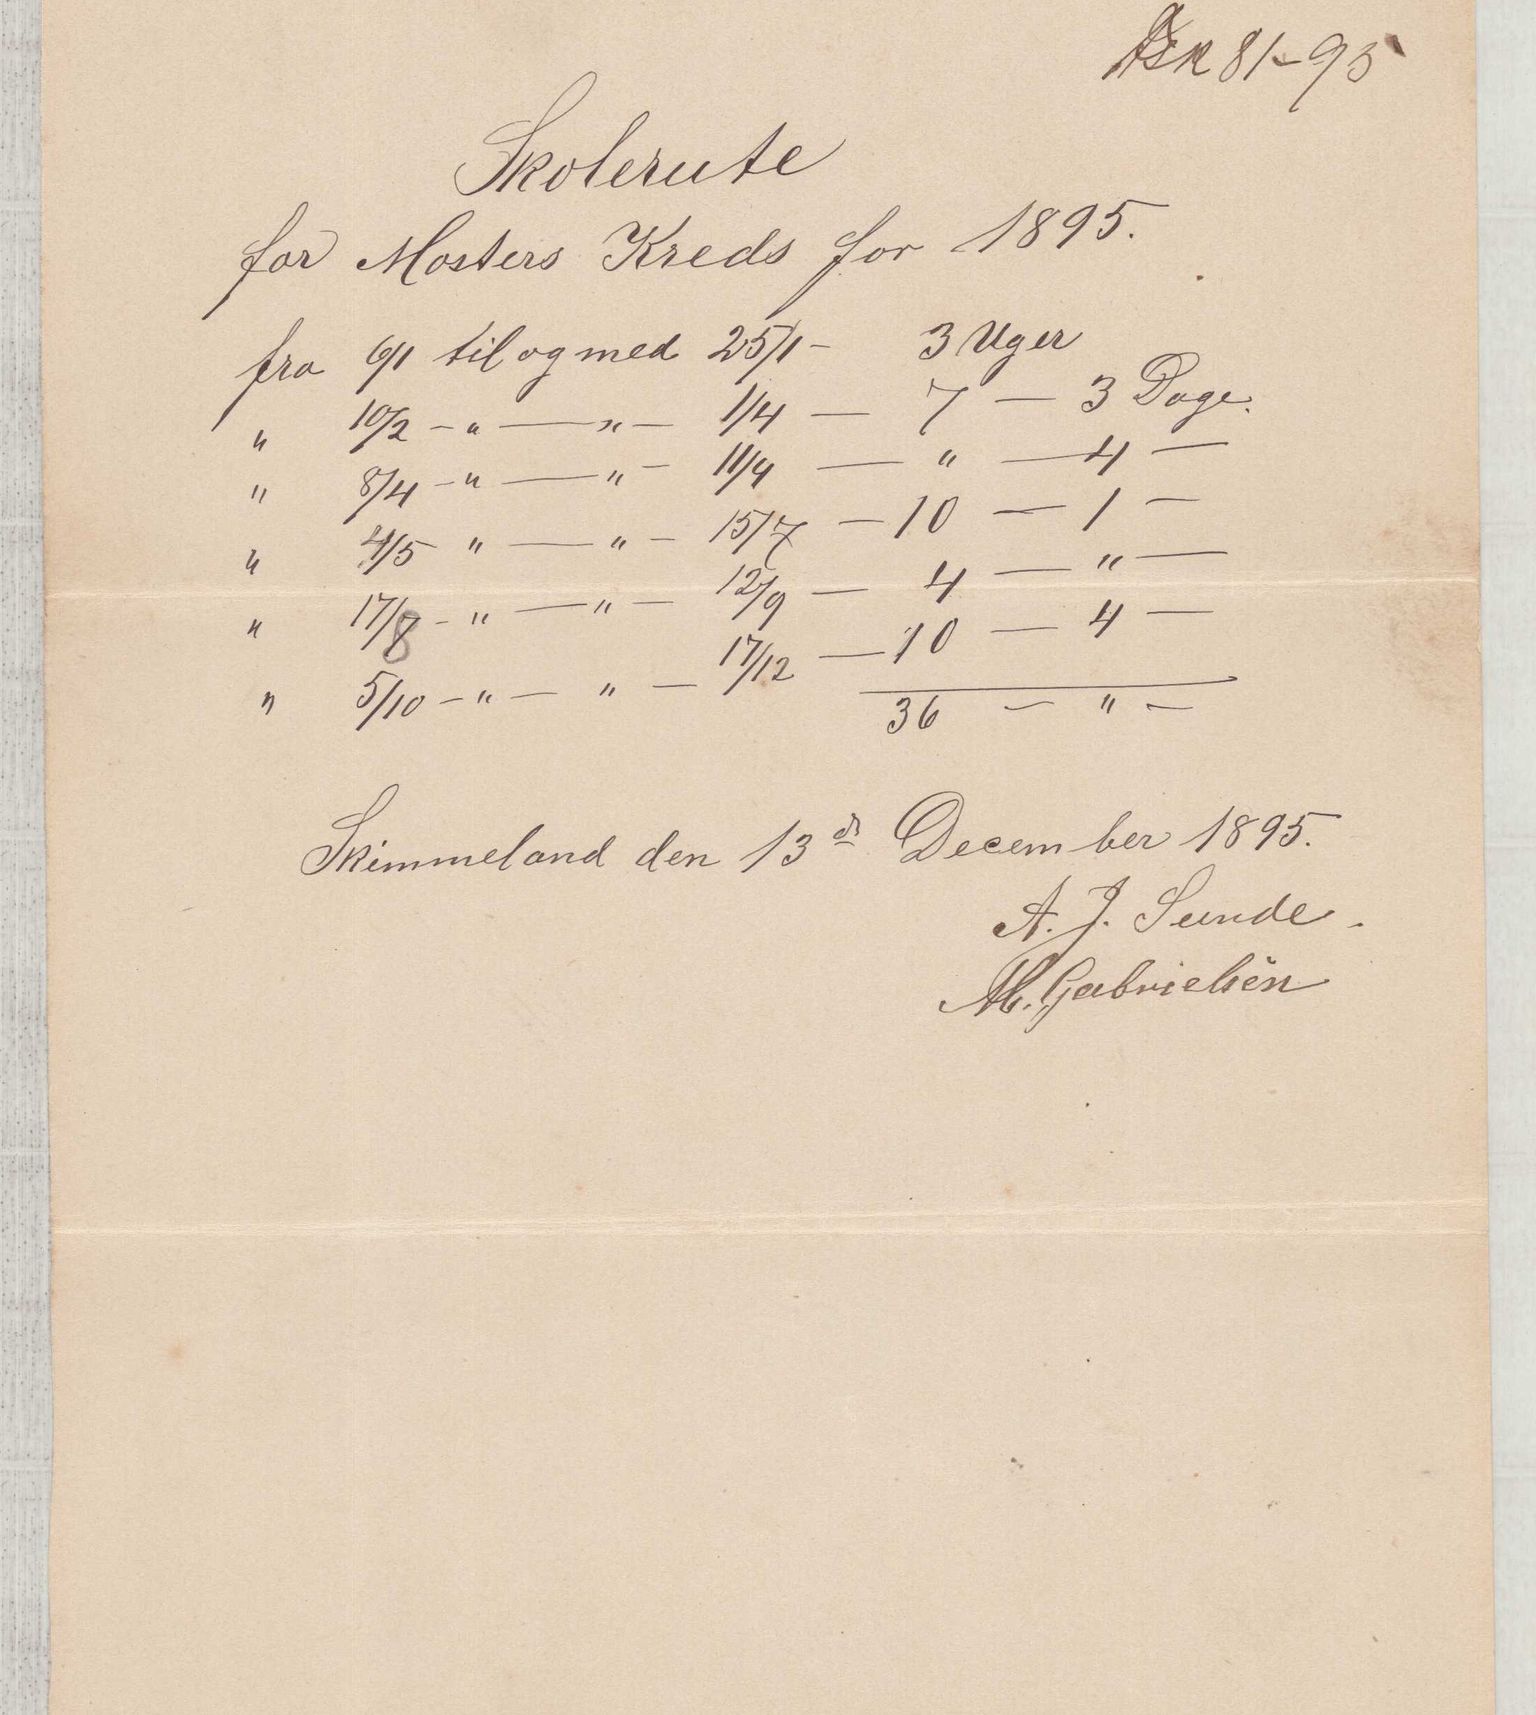 81-95
Skolerute
for Mosters Kreds for 1895.
fra 6/1 til og med 25/1 - 3 Uger
" 10/2 - " — " — 1/4 — 7 — 3 Dage.
" 8/4 - " — " - 11/4 — " — 4 —
" 4/5 " — " — 15/7 — 10 — 1 —
" 17/8 - " — " — 12/9 — 4 — " —
" 5/10 - " — " — 17/12 — 10 — 4 —
36 — " —
Skimmeland den 13de December 1895.
A. J. Sunde.
M. Gabrielsen